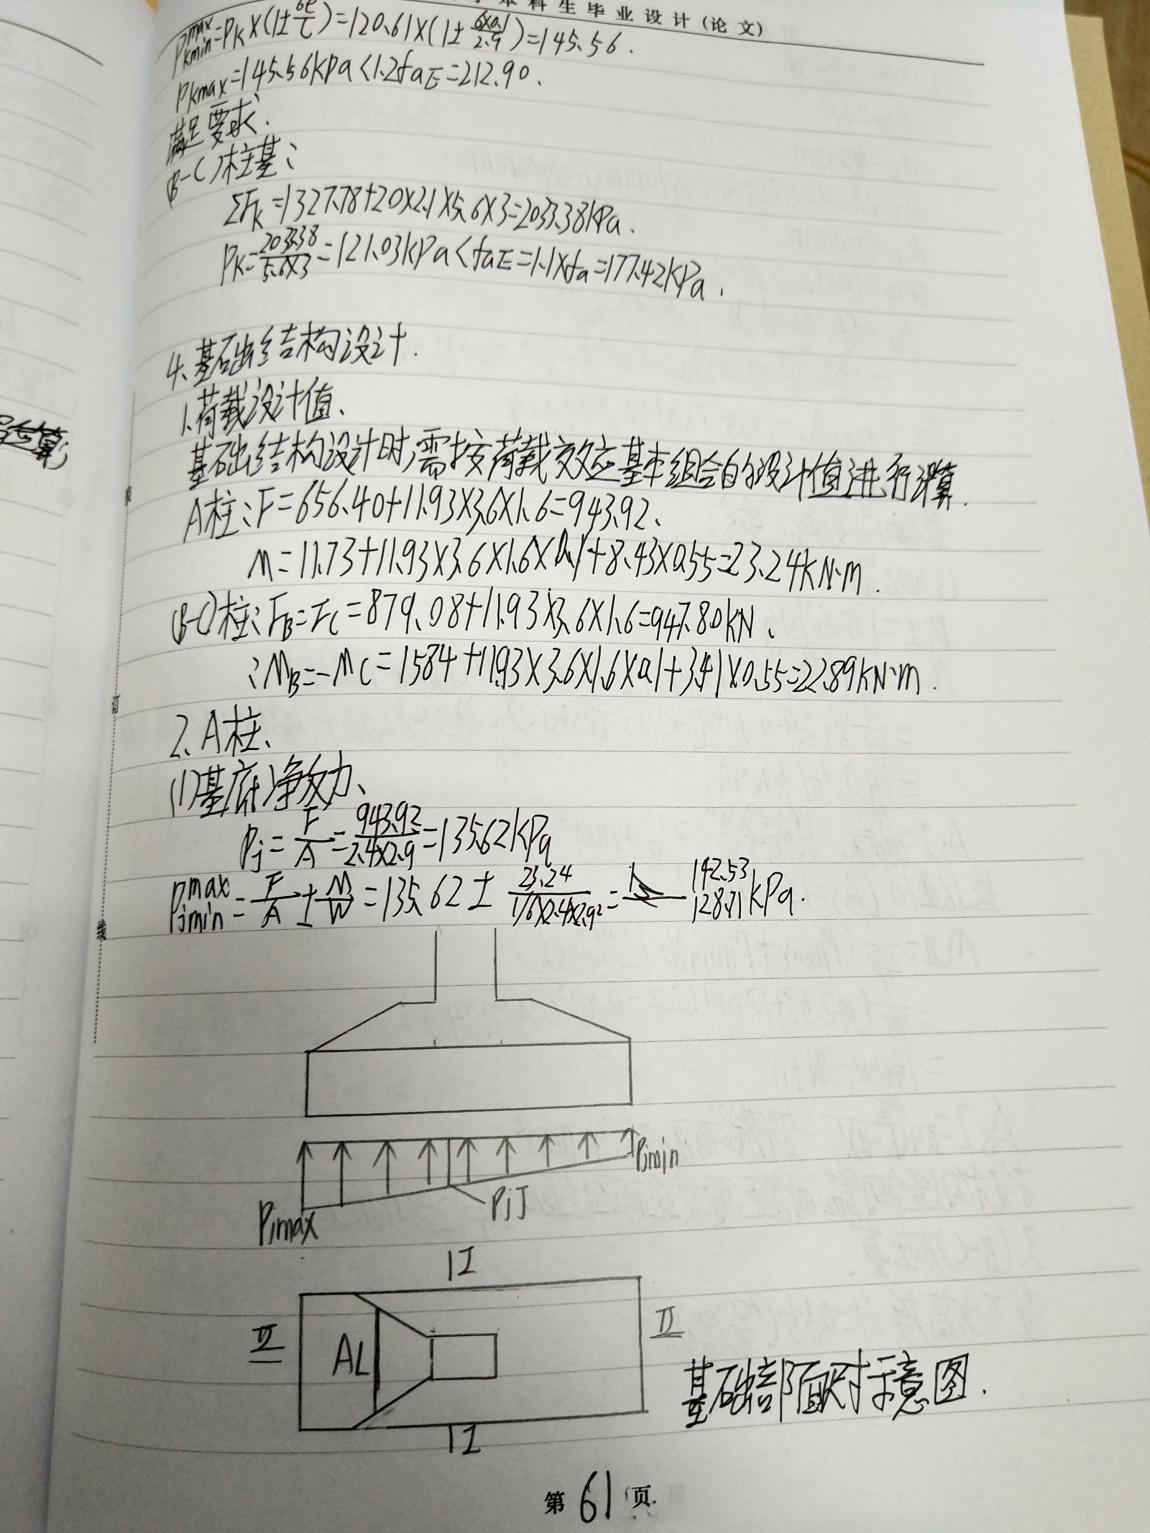 本科生毕业设计(论文)
Pkmax kmin=Pk×(1±6e/l)=120.61×(1±6×0.1/2.9)=145.56.
Pkmax=145.56kPa<1.2faE=212.90.
满足要求.
(B-C)柱基:
ΣFk=1327.78+20×2.1×5.6×3=2033.38kPa.
Pk=2033.38/5.6×3=121.03kPa<faE=1.1×fa=177.42kPa.
4.基础结构设计.
1.荷载设计值.
基础结构设计时,需按荷载效应基本组合的设计值进行计算.
A柱:F=656.40+11.93×3.6×1.6=943.92.
M=11.73+11.93×3.6×1.6×0.1+8.43×0.55=23.24kN·m.
(B-C)柱:FB=FC=879.08+11.93×3.6×1.6=947.80kN.
:MB=-MC=15.84+11.93×3.6×1.6×0.1+3.41×0.55=22.89kN·m.
2.A柱.
(1)基底净反力.
Pj=F/A=943.92/2.4×2.9=135.62kPa
Pjmax jmin=F/A±M/W=135.62±23.24/1/6×2.4×2.9²=142.53 128.71kPa.
线
Pjmin
PjI
Pjmax
I
II
AL
II
基础部面尺寸示意图.
I
第61页